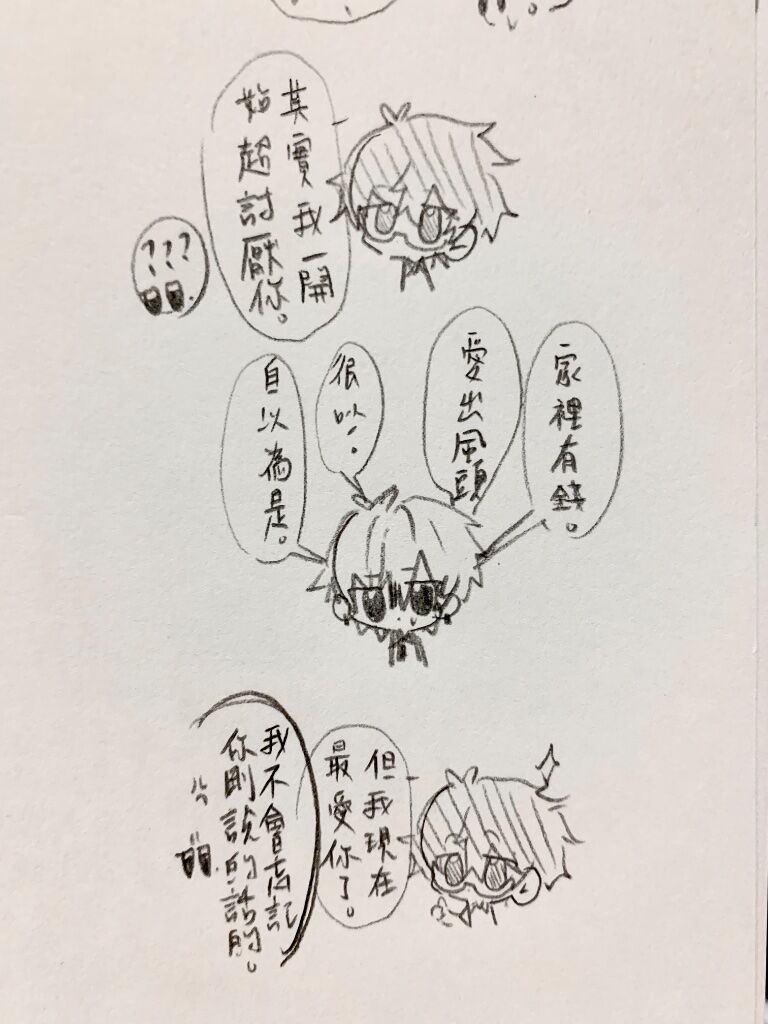 其實我一開
始超討厭你。
???
家裡有錢。
愛出風頭
很以。
自以為是。
但我現在
最愛你了。
我不會忘記
你剛說的話的。